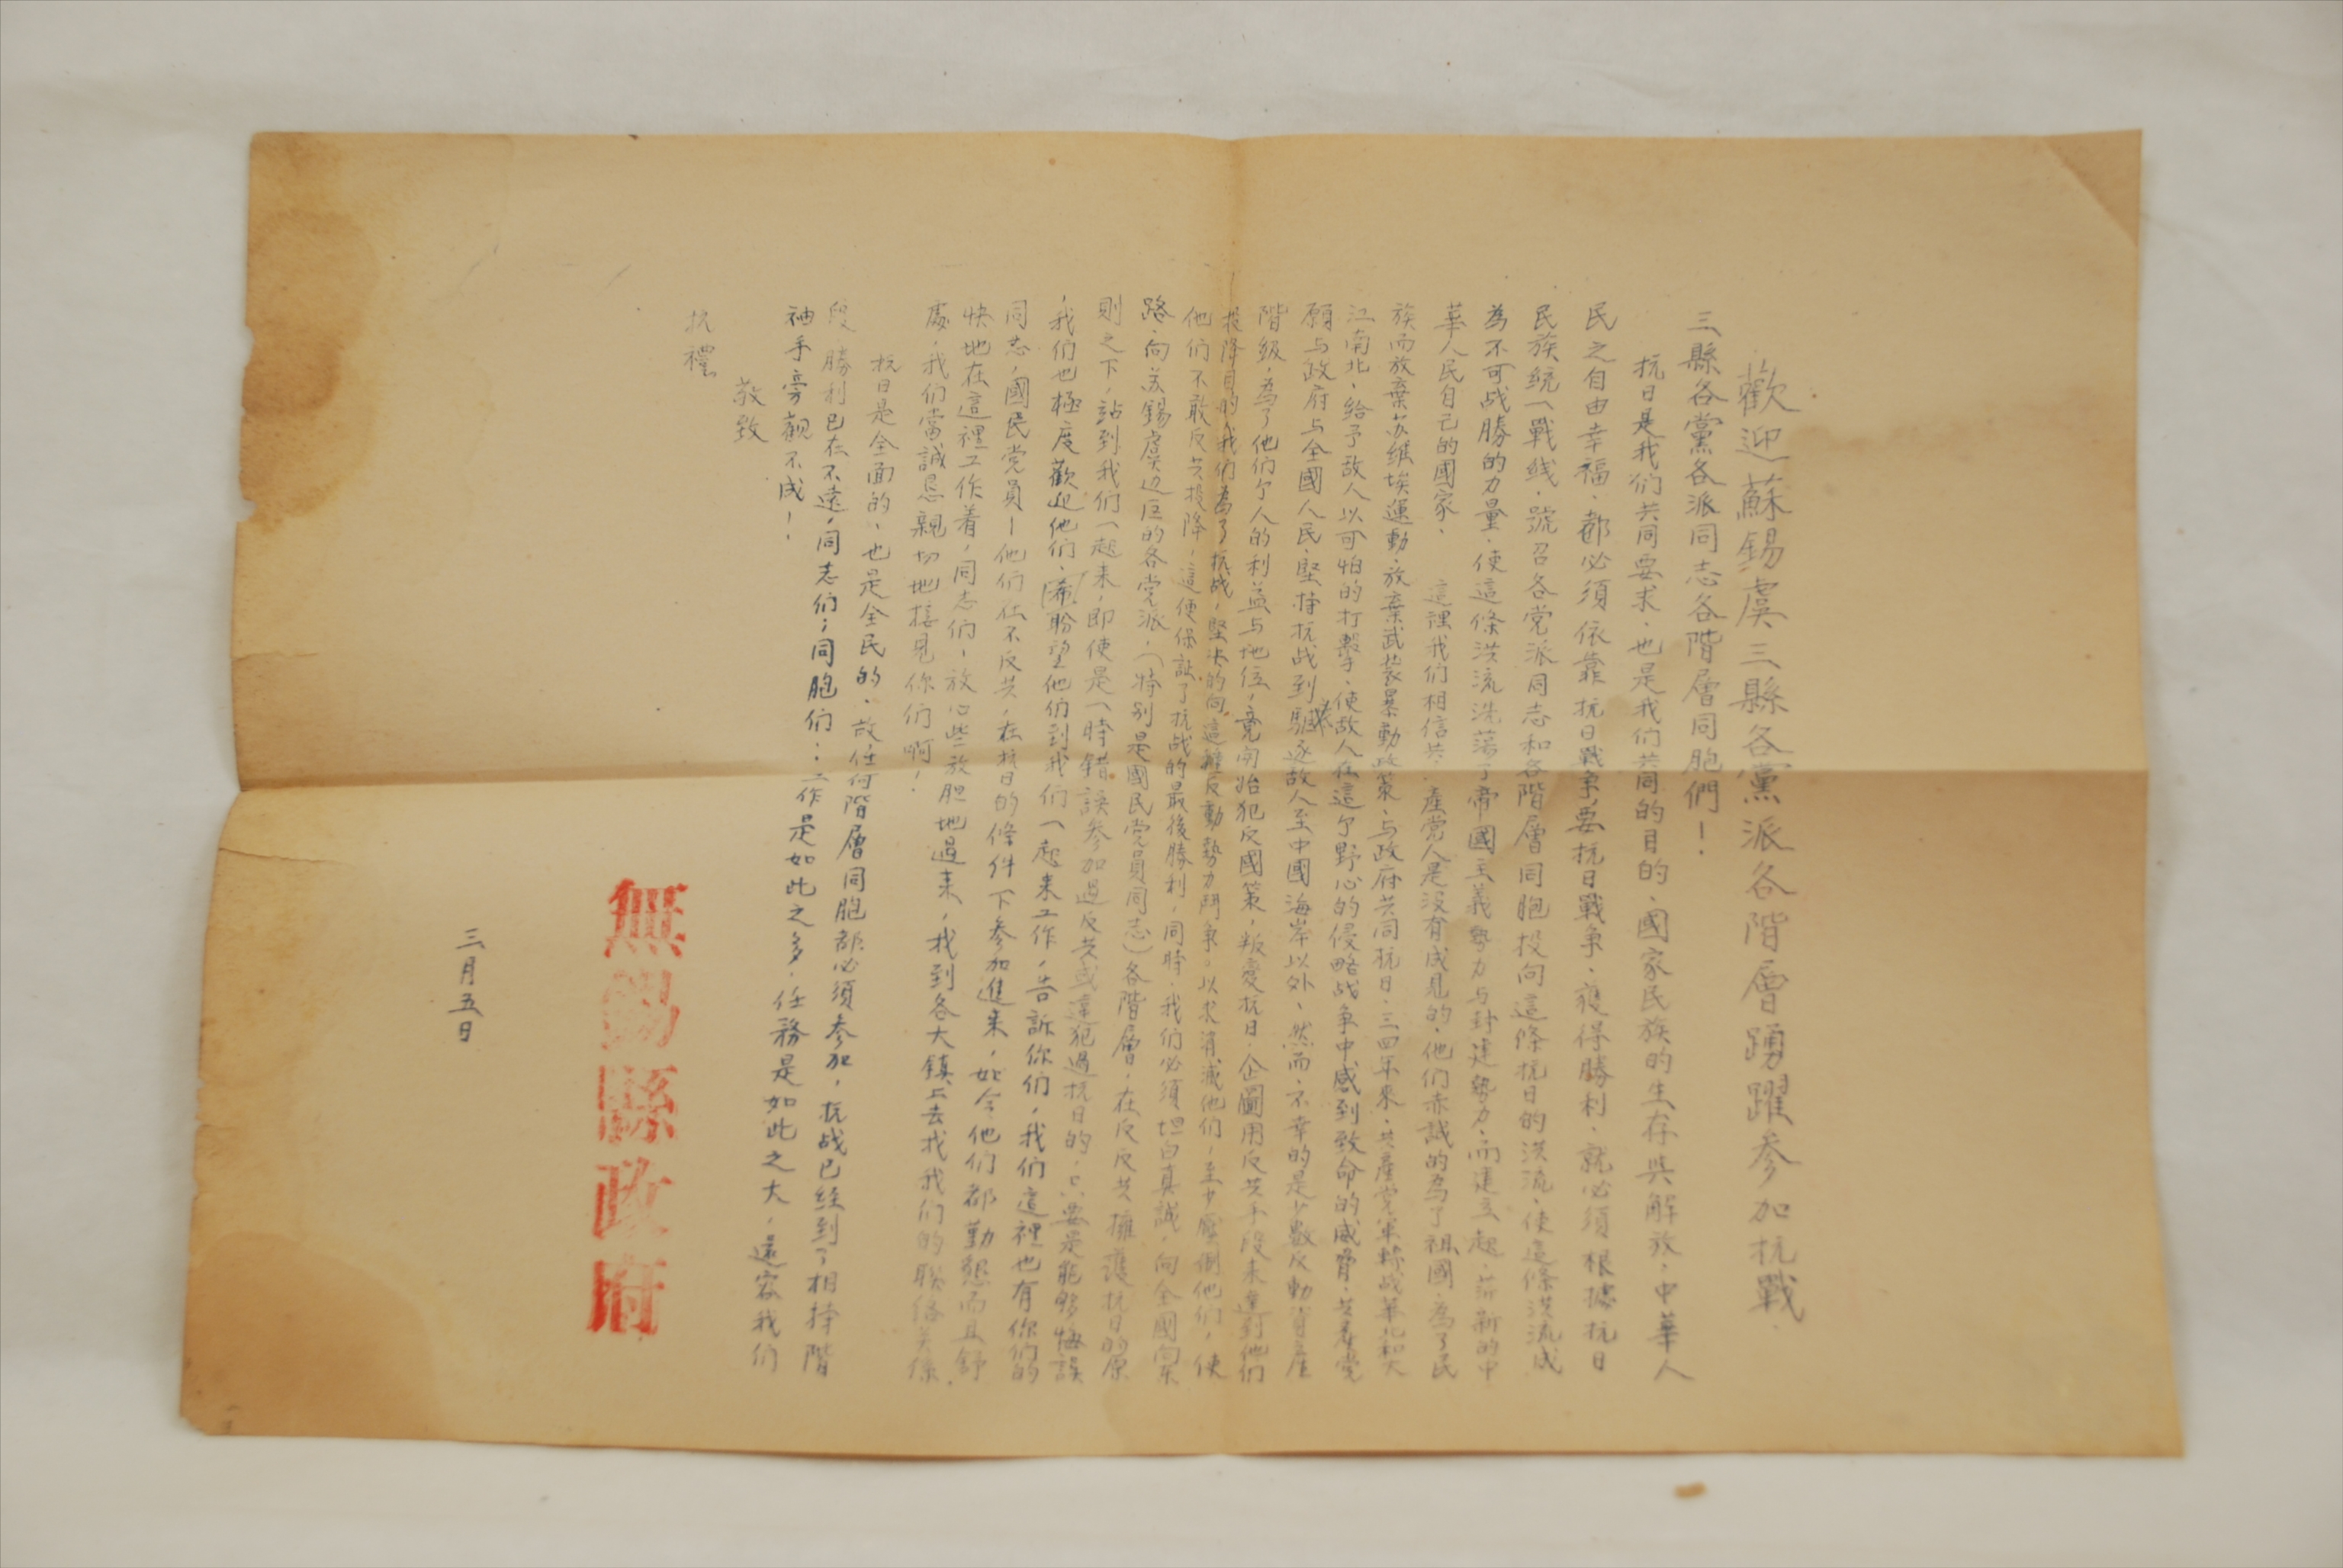 歡迎蘇錫虞三縣各黨派各階層踴躍參加抗戰
三縣各黨各派同志各階層同胞們！
抗日是我们共同要求、也是我们共同的目的、國家民族的生存與解放、中華人
民之自由幸福、都必須依靠抗日戰争、要抗日戰争、獲得勝利、就必須根據抗日
民族统一戰线、號召各党派同志和各階層同胞投向這條抗日的洪流、使這條洪流成
為不可战勝的力量、使這條洪流洗荡了帝國主義勢力与封建勢力、而建立起、嶄新的中
華人民自己的國家、 這裡我们相信共、產党人是没有成見的、他们赤誠的為了祖國、為了民
族而放棄苏維埃運動、放棄武装暴動政策、与政府共同抗日、三四年來、共產党軍轉战華北和大
江南北、給予敌人以可怕的打擊、使敌人在這个野心的侵略战争中感到致命的威脅、共產党
願与政府与全國人民、堅持抗战到驅逐敌人至中國海岸以外、然而、不幸的是少數反動資產
階級，為了他们个人的利益与地位，竟開始犯反國策，叛變抗日、企圖用反共手段来達到他们
投降目的，我们為了抗战，堅决的向這種反動勢力鬥争。以求消滅他们，至少壓倒他们，使
他们不敢反共投降，這便保証了抗战的最後勝利，同時、我们必須坦白真誠，向全國向東
路、向苏錫虞边区的各党派、（特别是國民党員同志）各階層，在反反共擁護抗日的原
則之下，站到我们一起来，即使是一時錯誤參加過反共或違犯過抗日的，只要是能够悔誤
，我们也極度歡迎他们、希盼望他们到我们一起来工作，告訴你们，我们這裡也有你们的
同志，國民党員！他们在不反共，在抗日的條件下參加進来，如今他们都勤懇而且舒
快地在這裡工作着，同志们，放心些放胆地過来，我到各大鎮上去找我们的聯络关係
處，我们當誠恳親切地接見你们啊！
抗日是全面的、也是全民的、故任何階層同胞都必須參加，抗战已經到了相持階
段 勝利已在不遠，同志们；同胞们：工作是如此之多，任務是如此之大，還容我们
袖手旁觀不成！
敬致
抗禮
無錫縣政府
三月五日